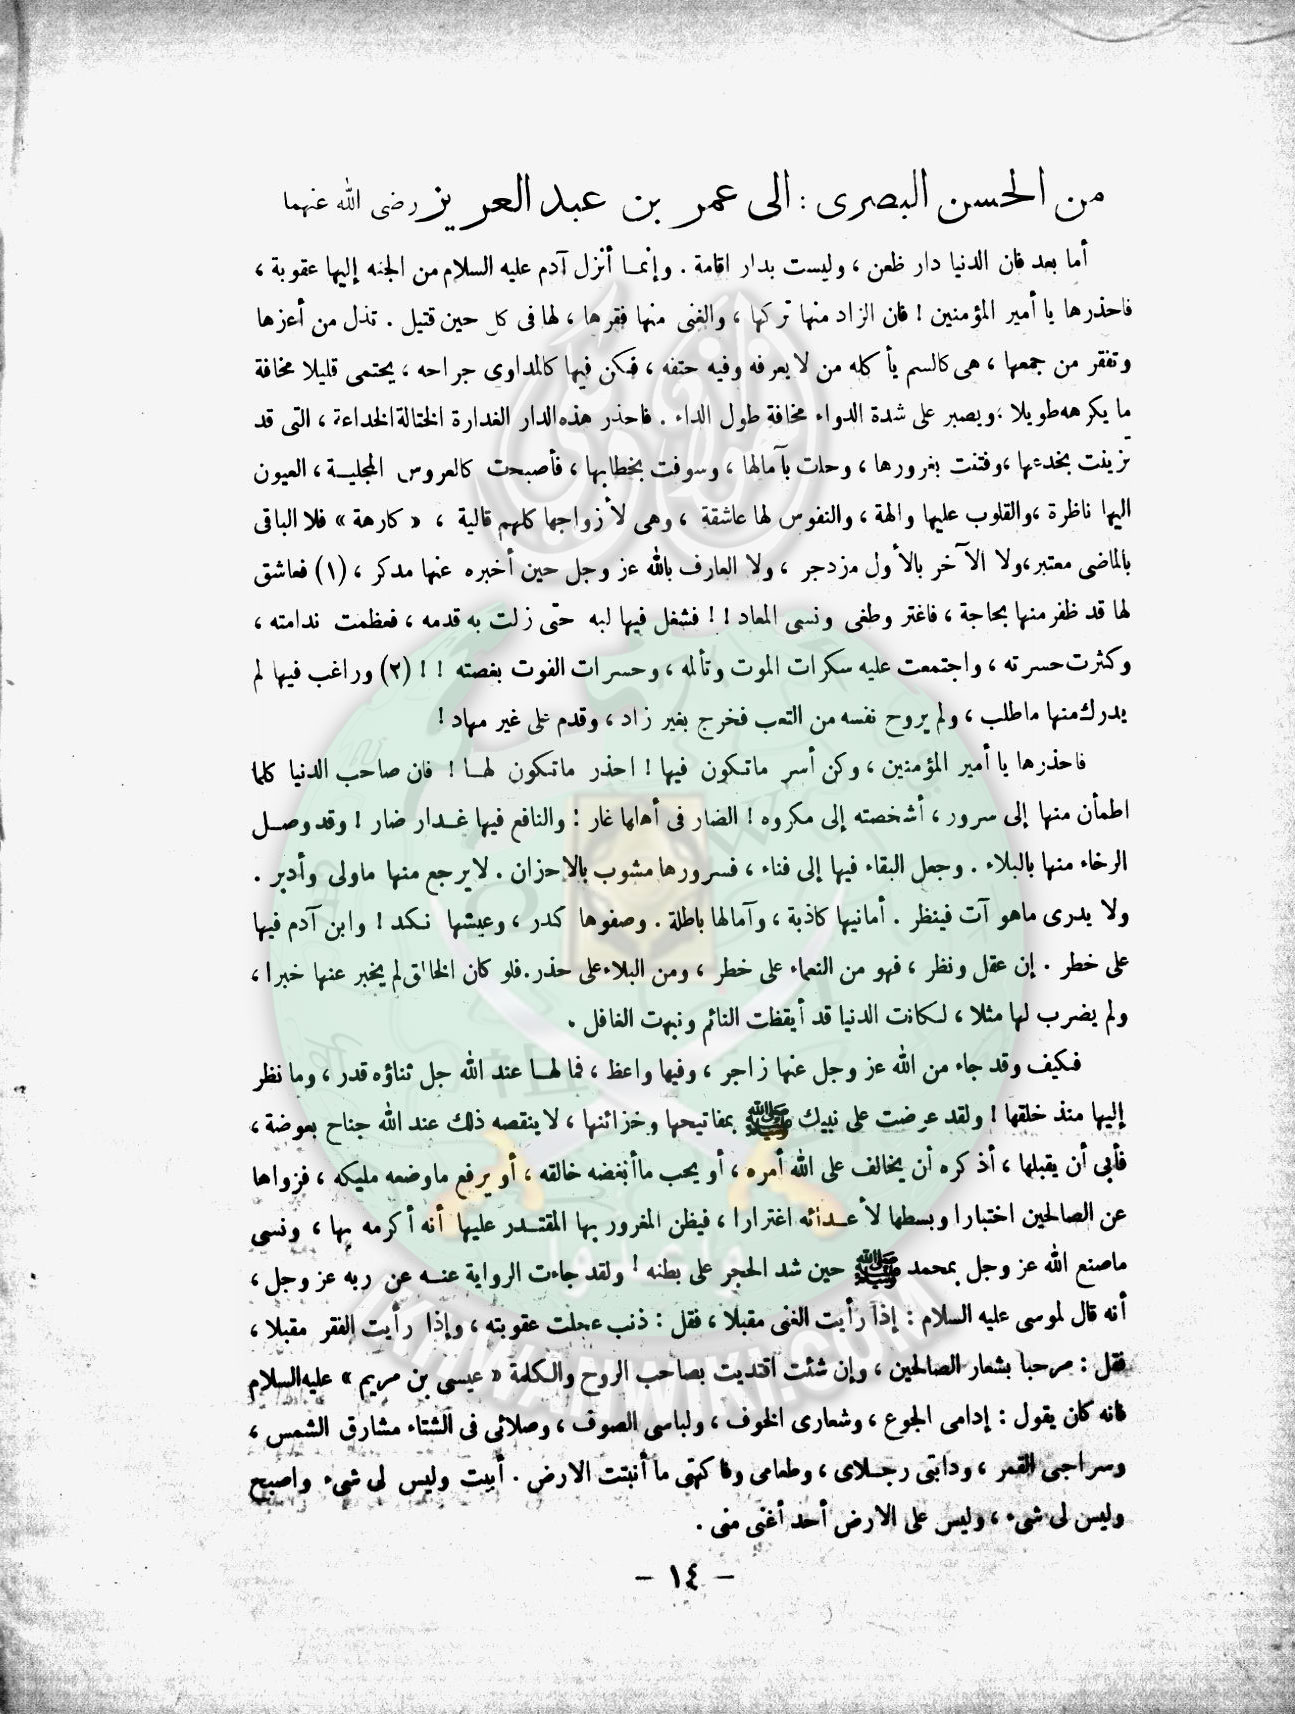 من الحسن البصرى : الى عمر بن عبد العزيز رضى الله عنهما
أما بعد فان الدنيا دار ظعن ، وليست بدار اقامة . وإنمـا أنزل آدم عليه السلام من الجنه إليها عقوبة ،
فاحذرها يا أمير المؤمنين ! فان الزاد منها تركها ، والغنى منها فقرها ، لها فى كل حين قتيل . تذل من أعزها
وتفقر من جمعها ، هى كالسم يأكله من لا يعرفه وفيه حتفه ، فكن فيها كالمداوى جراحه ، يحتمى قليلا مخافة
ما يكرهه طويلا ، ويصبر على شدة الدواء مخافة طول الداء . فاحذر هذه الدار الغدارة الختالة الخداعة ، التى قد
تزينت بخدعها ، وفتنت بغرورها ، وحلت بآمالها ، وسوفت بخطابها ، فأصبحت كالعروس المجليـة ، العيون
اليها ناظرة ، والقلوب عليها والهة ، والنفوس لها عاشقة ، وهى لأزواجها كلهم قالية ، « كارهة » فلا الباقى
بالماضى معتبر ، ولا الآخر بالأول مزدجر ، ولا العارف بالله عز وجل حين أخبره عنها مدكر ، (١) فعاشق
لها قد ظفر منها بحاجة ، فاغتر وطغى ونسى المعاد ! ! فشغل فيها لبه حتى زلت به قدمه ، فعظمت ندامته ،
وكثرت حسرته ، واجتمعت عليه سكرات الموت وتألمه ، وحسرات الفوت بغصته ! ! (٢) وراغب فيها لم
يدرك منها ماطلب ، ولم يروح نفسه من التعب فخرج بغير زاد ، وقدم على غير مهاد !
فاحذرها يا أمير المؤمنين ، وكن أسر ماتكون فيها ! احذر ماتكون لهـا ! فان صاحب الدنيا كلما
اطمأن منها إلى سرور ، أشخصته إلى مكروه ! الضار فى أهلها غار : والنافع فيها غـدار ضار ! وقد وصـل
الرخاء منها بالبلاء . وجعل البقاء فيها إلى فناء ، فسرورها مشوب بالاحزان . لايرجع منها ماولى وأدبر .
ولا يدرى ماهو آت فينظر . أمانيها كاذبة ، وآمالها باطلة . وصفوها كدر ، وعيشها نكد ! وابن آدم فيها
على خطر . إن عقل ونظر ، فهو من النعماء على خطر ، ومن البلاء على حذر . فلو كان الخالق لم يخبر عنها خبرا ،
ولم يضرب لها مثلا ، لكانت الدنيا قد أيقظت النائم ونبهت الغافل .
فكيف وقد جاء من الله عز وجل عنها زاجر ، وفيها واعظ ، فما لهـا عند الله جل ثناؤه قدر ، وما نظر
إليها منذ خلقها ! ولقد عرضت على نبيك ﷺ بمفاتيحها وخزائنها ، لاينقصه ذلك عند الله جناح بعوضة ،
فأبى أن يقبلها ، أذ كره أن يخالف على الله أمره ، أو يحب ماأبغضه خالقه ، أو يرفع ماوضعه مليكه ، فزواها
عن الصالحين اختبارا وبسطها لأعـدائه اغترارا ، فيظن المغرور بها المقتـدر عليها أنه أكرمه بها ، ونسى
ماصنع الله عز وجل بمحمد ﷺ حين شد الحجر على بطنه ! ولقد جاءت الرواية عنـه عن ربه عز وجل ،
أنه قال لموسى عليه السلام : إذا رأيت الغنى مقبلا ، فقل : ذنب عجلت عقوبته ، وإذا رأيت الفقر مقبلا ،
فقل : مرحبا بشعار الصالحين ، وإن شئت اقتديت بصاحب الروح والكلمة « عيسى بن مريم » عليه السلام
فانه كان يقول : إدامى الجوع ، وشعارى الخوف ، ولباسى الصوف ، وصلائى فى الشتاء مشارق الشمس ،
وسراجى القمر ، ودابتى رجـلاى ، وطعامى وفاكهتى ما أنبتت الارض . أبيت وليس لى شىء واصبح
وليس لى شىء ، وليس على الارض أحد أغنى منى .
- ١٤ -
IKHWANWIKI.COM
وأعدوا